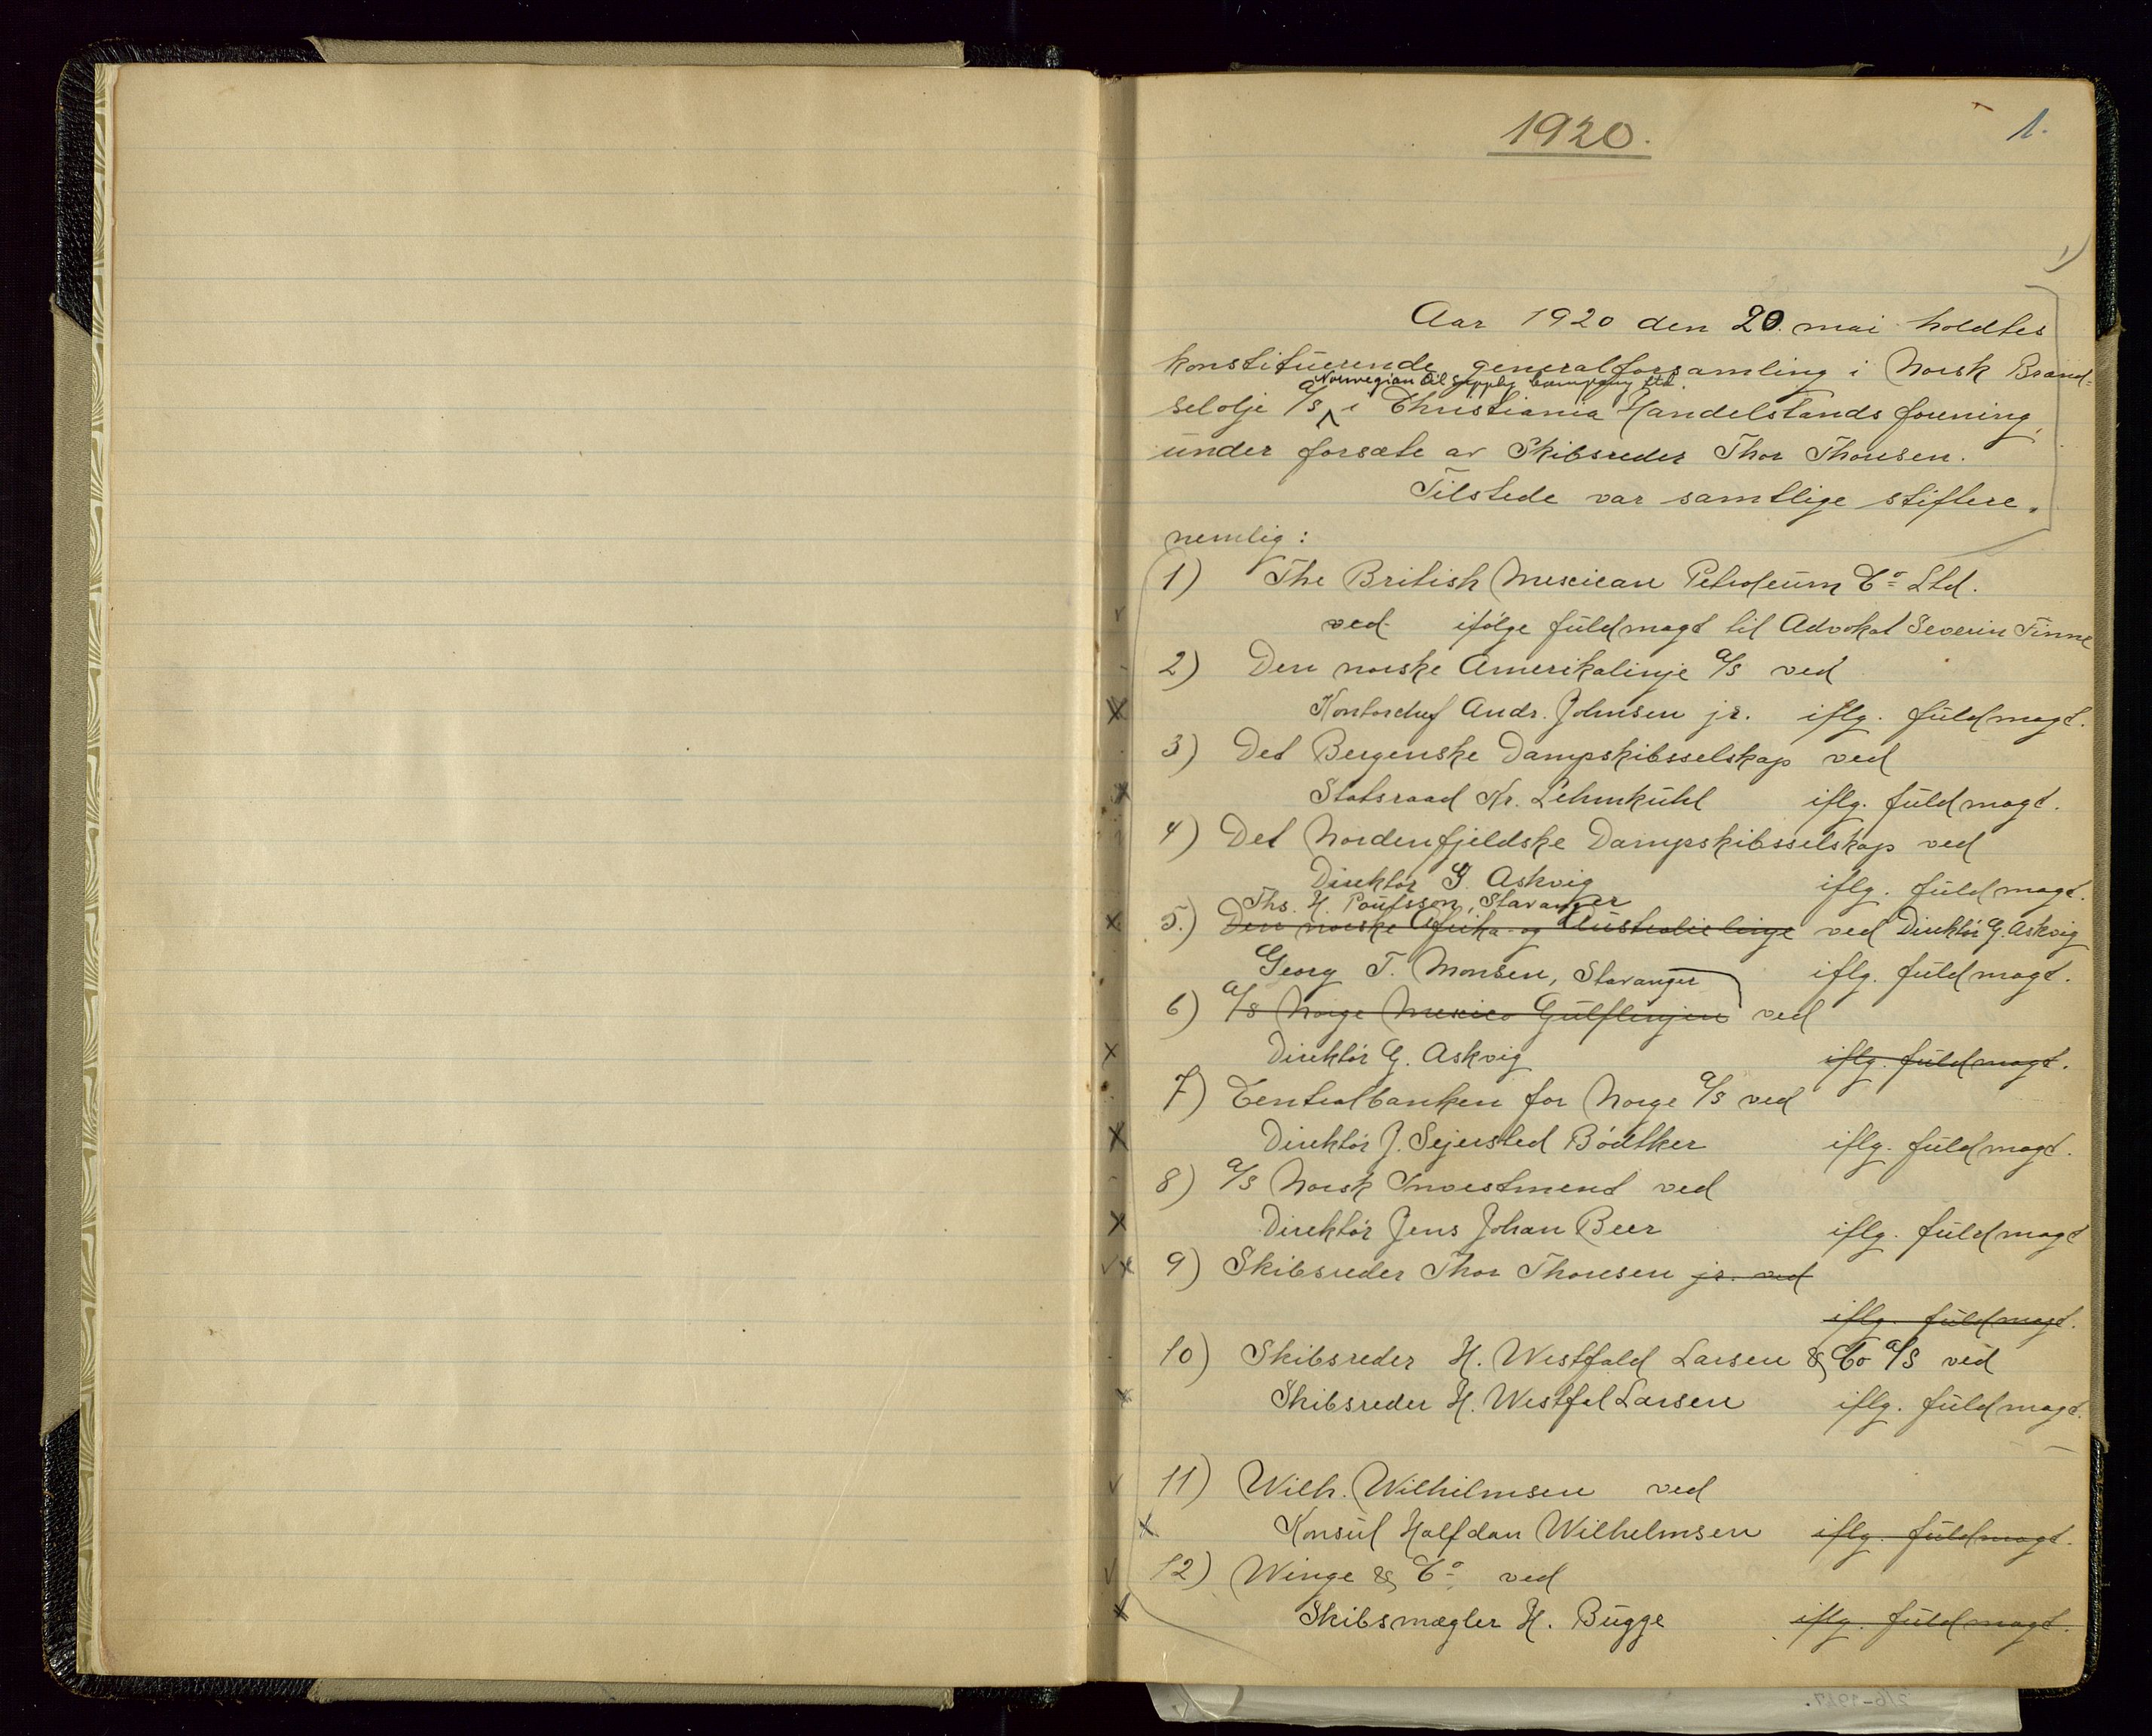 1920.
1.
1)
Aar 1920 den 20. mai holdtes
konstituerende generalforsamling i Norsk Brænd=
Norwegian Oil Supply Company Ltd.
selolje A/S i Christiania Handelstands forening,
under forsæte av Skibsreder Thor Thoresen.
Tilstede var samtlige stiftere,
nemlig:
1) The British Mexican Petroleum Co= Ltd.
ved ifølge fuldmagt til Advokat Severin Finne
2) Den norske Amerikalinje A/S ved
Kontorchef Andr. Johnsen jr. iflg. fuldmagt.
3) Det Bergenske Dampskibsselskap ved
Statsraad Kr. Lehmkuhl iflg. fuldmagt.
4) Det Nordenfjeldske Dampskibsselskap ved
Direktør G. Askvig iflg. fuldmagt.
Ths. H. Poulsson, Stavanger
5.) Den norske Afrika- og Australielinje ved Direktør G. Askvig
Georg T. Monsen, Stavanger iflg. fuldmagt.
6) A/S Norge Mexico Gulflinjen ved
Direktør G. Askvig iflg. fuldmagt.
7) Centralbanken for Norge A/S ved
Direktør J. Sejersted Bødtker iflg. fuldmagt.
8) A/S Norsk Investment ved
Direktør Jens Johan Beer iflg. fuldmagt
9) Skibsreder Thor Thoresen jr. ved
iflg. fuldmagt.
10) Skibsreder H. Westfald Larsen & Co A/S ved
Skibsreder H. Westfal Larsen iflg. fuldmagt.
11) Wilh. Wilhilmsen ved
Konsul Halfdan Wilhelmsen iflg. fuldmagt.
12) Winge & Co= ved
Skibsmægler H. Bugge iflg. fuldmagt.
2/6-1927.